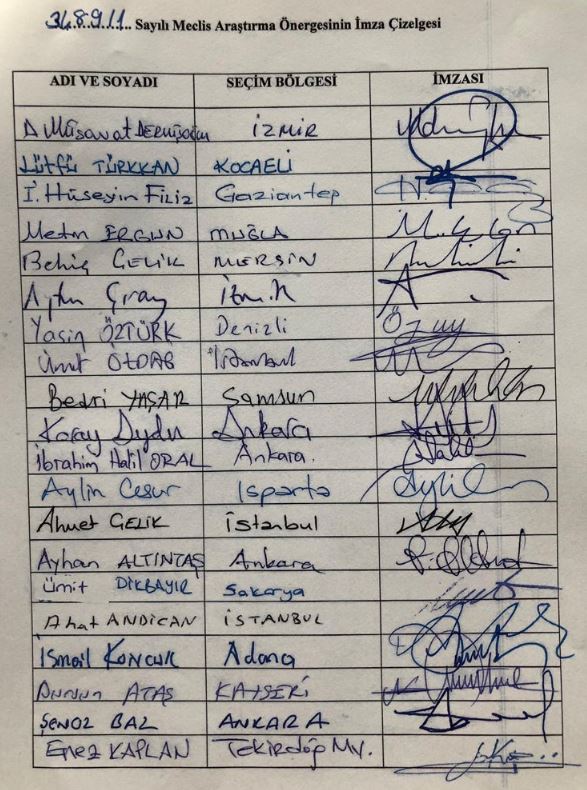 348911.. Sayılı Meclis Araştırma Önergesinin İmza Çizelgesi
ADI VE SOYADI SEÇİM BÖLGESİ İMZASI
D Müsavat DERVİŞOĞLU İZMİR
Lütfü TÜRKKAN KOCAELİ
İ. Hüseyin Filiz Gaziantep
Metin ERGUN MUĞLA
Behiç ÇELİK MERSİN
Aytun Çıray İzmir
Yasin ÖZTÜRK Denizli Öz
Ümit ÖZDAĞ İstanbul
Bedri YAŞAR Samsun
Koray Aydın Ankara
İbrahim Halil ORAL Ankara.
Aylin Cesur Isparta Aylin
Ahmet ÇELİK İstanbul
Ayhan ALTINTAŞ Ankara
Ümit DİKBAYIR Sakarya
Ahat ANDİCAN İSTANBUL
İsmail KONCUK Adana
Dursun ATAŞ KAYSERİ
ŞENOL BAL ANKARA
Enez KAPLAN Tekirdağ MV.